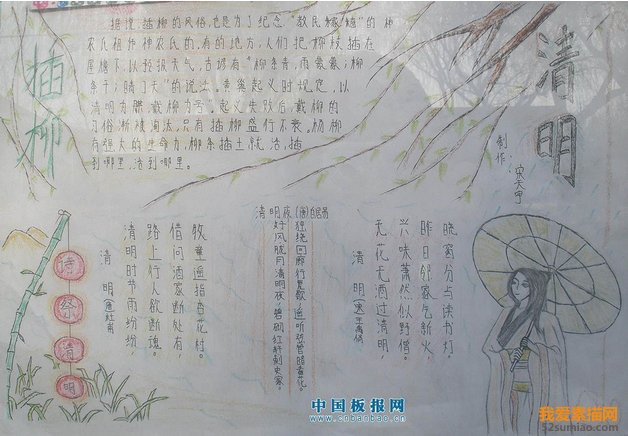 清明
插柳
据说，插柳的风俗，也是为了纪念“教民稼穑”的
农氏祖师神农氏的。有的地方，人们把柳枝插在
屋檐下，以预报天气，古谚有“柳条青，雨蒙蒙；柳
条干，晴了天”的说法。黄巢起义时规定，以
清明为期，戴柳为号”。起义失败后，戴柳的
习俗渐被淘汰，只有插柳盛行不衰。杨柳
有强大的生命力，柳条插土就活，插
到哪里，活到哪里。
制作：
清明
无花无酒过清明，
兴味萧然似野僧。
昨日邻家乞新火，
晓窗分与读书灯。
清明夜（唐）白居易
好风胧月清明夜，碧砌红轩刺史家。
独绕回廊行复歇，遥听弦管暗看花。
清明
清明时节雨纷纷，
路上行人欲断魂。
借问酒家断处有，
牧童遥指杏花村。
诗
祭
清
明
中国板报网
www.cnbanbao.cn
我爱素描网
52sumiao.com